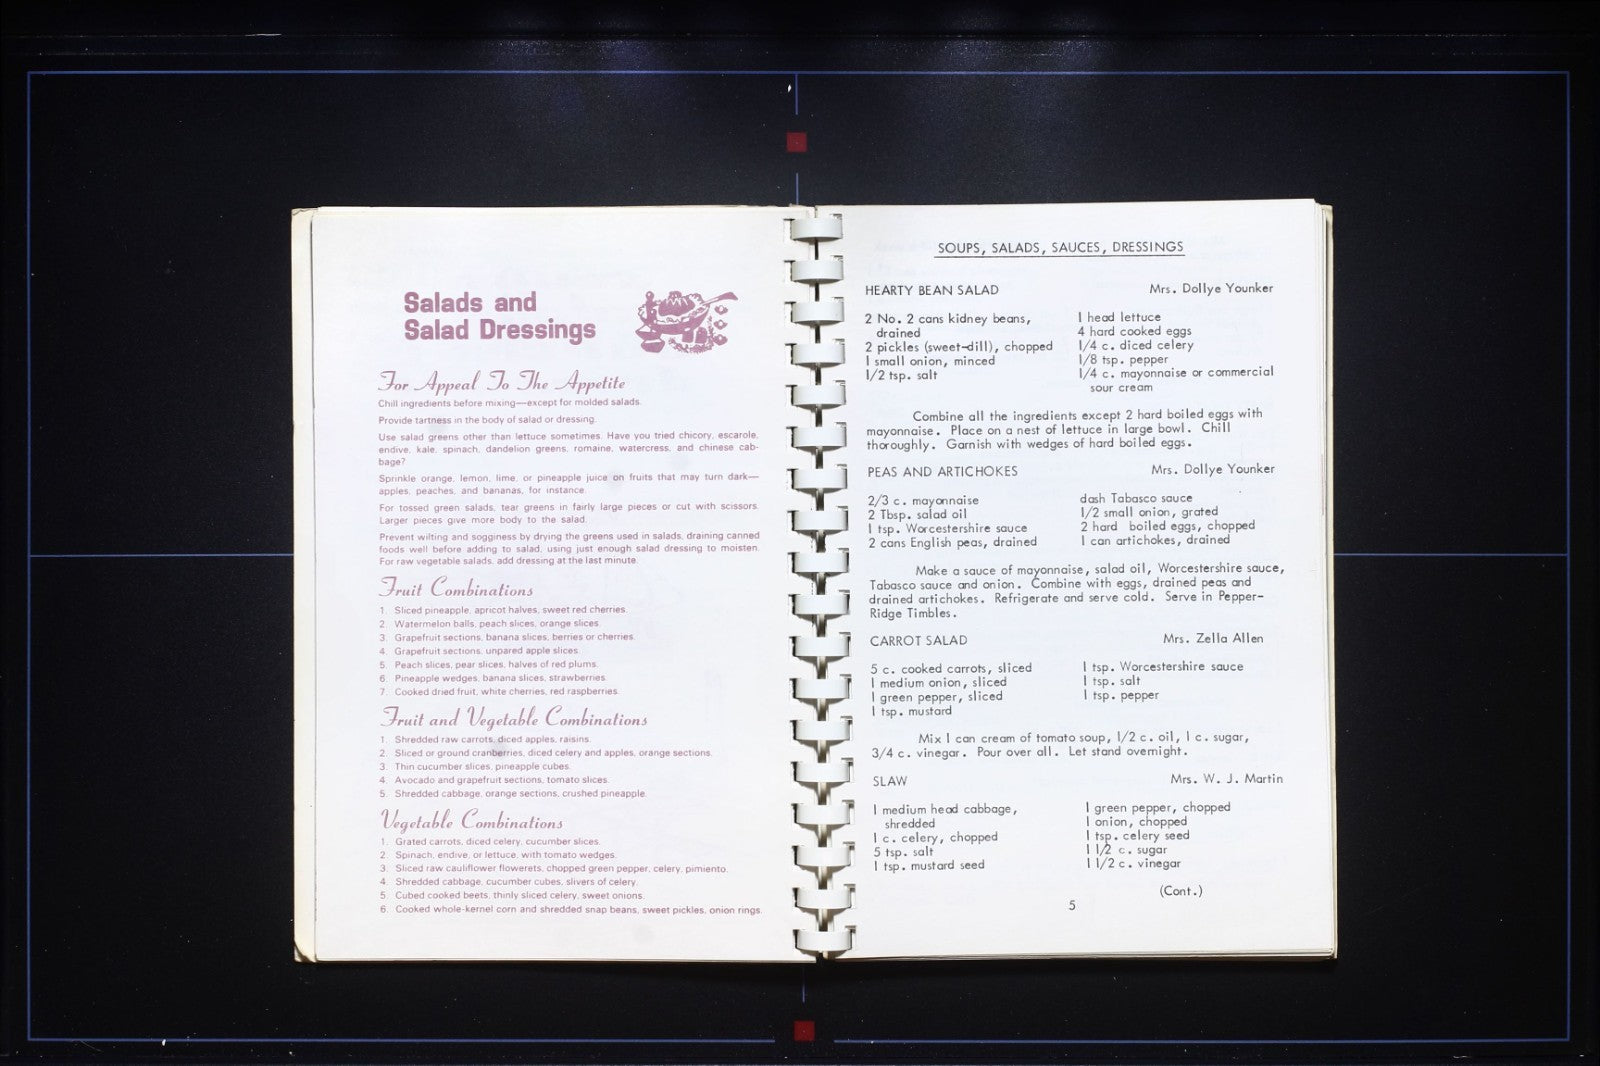 Salads and
Salad Dressings
For Appeal To The Appetite
Chill ingredients before mixing—except for molded salads.
Provide tartness in the body of salad or dressing.
Use salad greens other than lettuce sometimes. Have you tried chicory, escarole,
endive, kale, spinach, dandelion greens, romaine, watercress, and chinese cab-
bage?
Sprinkle orange, lemon, lime, or pineapple juice on fruits that may turn dark—
apples, peaches, and bananas, for instance.
For tossed green salads, tear greens in fairly large pieces or cut with scissors.
Larger pieces give more body to the salad.
Prevent wilting and sogginess by drying the greens used in salads, draining canned
foods well before adding to salad, using just enough salad dressing to moisten.
For raw vegetable salads, add dressing at the last minute.
Fruit Combinations
1. Sliced pineapple, apricot halves, sweet red cherries.
2. Watermelon balls, peach slices, orange slices.
3. Grapefruit sections, banana slices, berries or cherries.
4. Grapefruit sections, unpared apple slices.
5. Peach slices, pear slices, halves of red plums.
6. Pineapple wedges, banana slices, strawberries.
7. Cooked dried fruit, white cherries, red raspberries.
Fruit and Vegetable Combinations
1. Shredded raw carrots, diced apples, raisins.
2. Sliced or ground cranberries, diced celery and apples, orange sections.
3. Thin cucumber slices, pineapple cubes.
4. Avocado and grapefruit sections, tomato slices.
5. Shredded cabbage, orange sections, crushed pineapple.
Vegetable Combinations
1. Grated carrots, diced celery, cucumber slices.
2. Spinach, endive, or lettuce, with tomato wedges.
3. Sliced raw cauliflower flowerets, chopped green pepper, celery, pimiento.
4. Shredded cabbage, cucumber cubes, slivers of celery.
5. Cubed cooked beets, thinly sliced celery, sweet onions.
6. Cooked whole-kernel corn and shredded snap beans, sweet pickles, onion rings.
SOUPS, SALADS, SAUCES, DRESSINGS
HEARTY BEAN SALAD Mrs. Dollye Younker
2 No. 2 cans kidney beans,
drained
2 pickles (sweet-dill), chopped
1 small onion, minced
1/2 tsp. salt
1 head lettuce
4 hard cooked eggs
1/4 c. diced celery
1/8 tsp. pepper
1/4 c. mayonnaise or commercial
sour cream
Combine all the ingredients except 2 hard boiled eggs with
mayonnaise. Place on a nest of lettuce in large bowl. Chill
thoroughly. Garnish with wedges of hard boiled eggs.
PEAS AND ARTICHOKES Mrs. Dollye Younker
2/3 c. mayonnaise
2 Tbsp. salad oil
1 tsp. Worcestershire sauce
2 cans English peas, drained
dash Tabasco sauce
1/2 small onion, grated
2 hard boiled eggs, chopped
1 can artichokes, drained
Make a sauce of mayonnaise, salad oil, Worcestershire sauce,
Tabasco sauce and onion. Combine with eggs, drained peas and
drained artichokes. Refrigerate and serve cold. Serve in Pepper-
Ridge Timbles.
CARROT SALAD Mrs. Zella Allen
5 c. cooked carrots, sliced
1 medium onion, sliced
1 green pepper, sliced
1 tsp. mustard
1 tsp. Worcestershire sauce
1 tsp. salt
1 tsp. pepper
Mix 1 can cream of tomato soup, 1/2 c. oil, 1 c. sugar,
3/4 c. vinegar. Pour over all. Let stand overnight.
SLAW Mrs. W. J. Martin
1 medium head cabbage,
shredded
1 c. celery, chopped
5 tsp. salt
1 tsp. mustard seed
1 green pepper, chopped
1 onion, chopped
1 tsp. celery seed
1 1/2 c. sugar
1 1/2 c. vinegar
(Cont.)
5